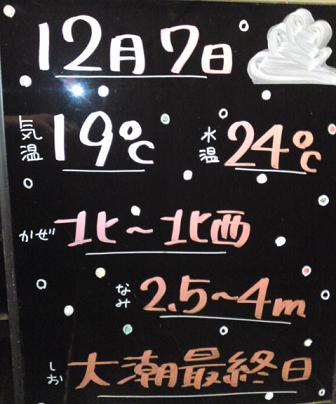 12月7日
気温 19℃ 水温 24℃
かぜ 北〜北西
なみ 2.5〜4m
しお 大潮最終日